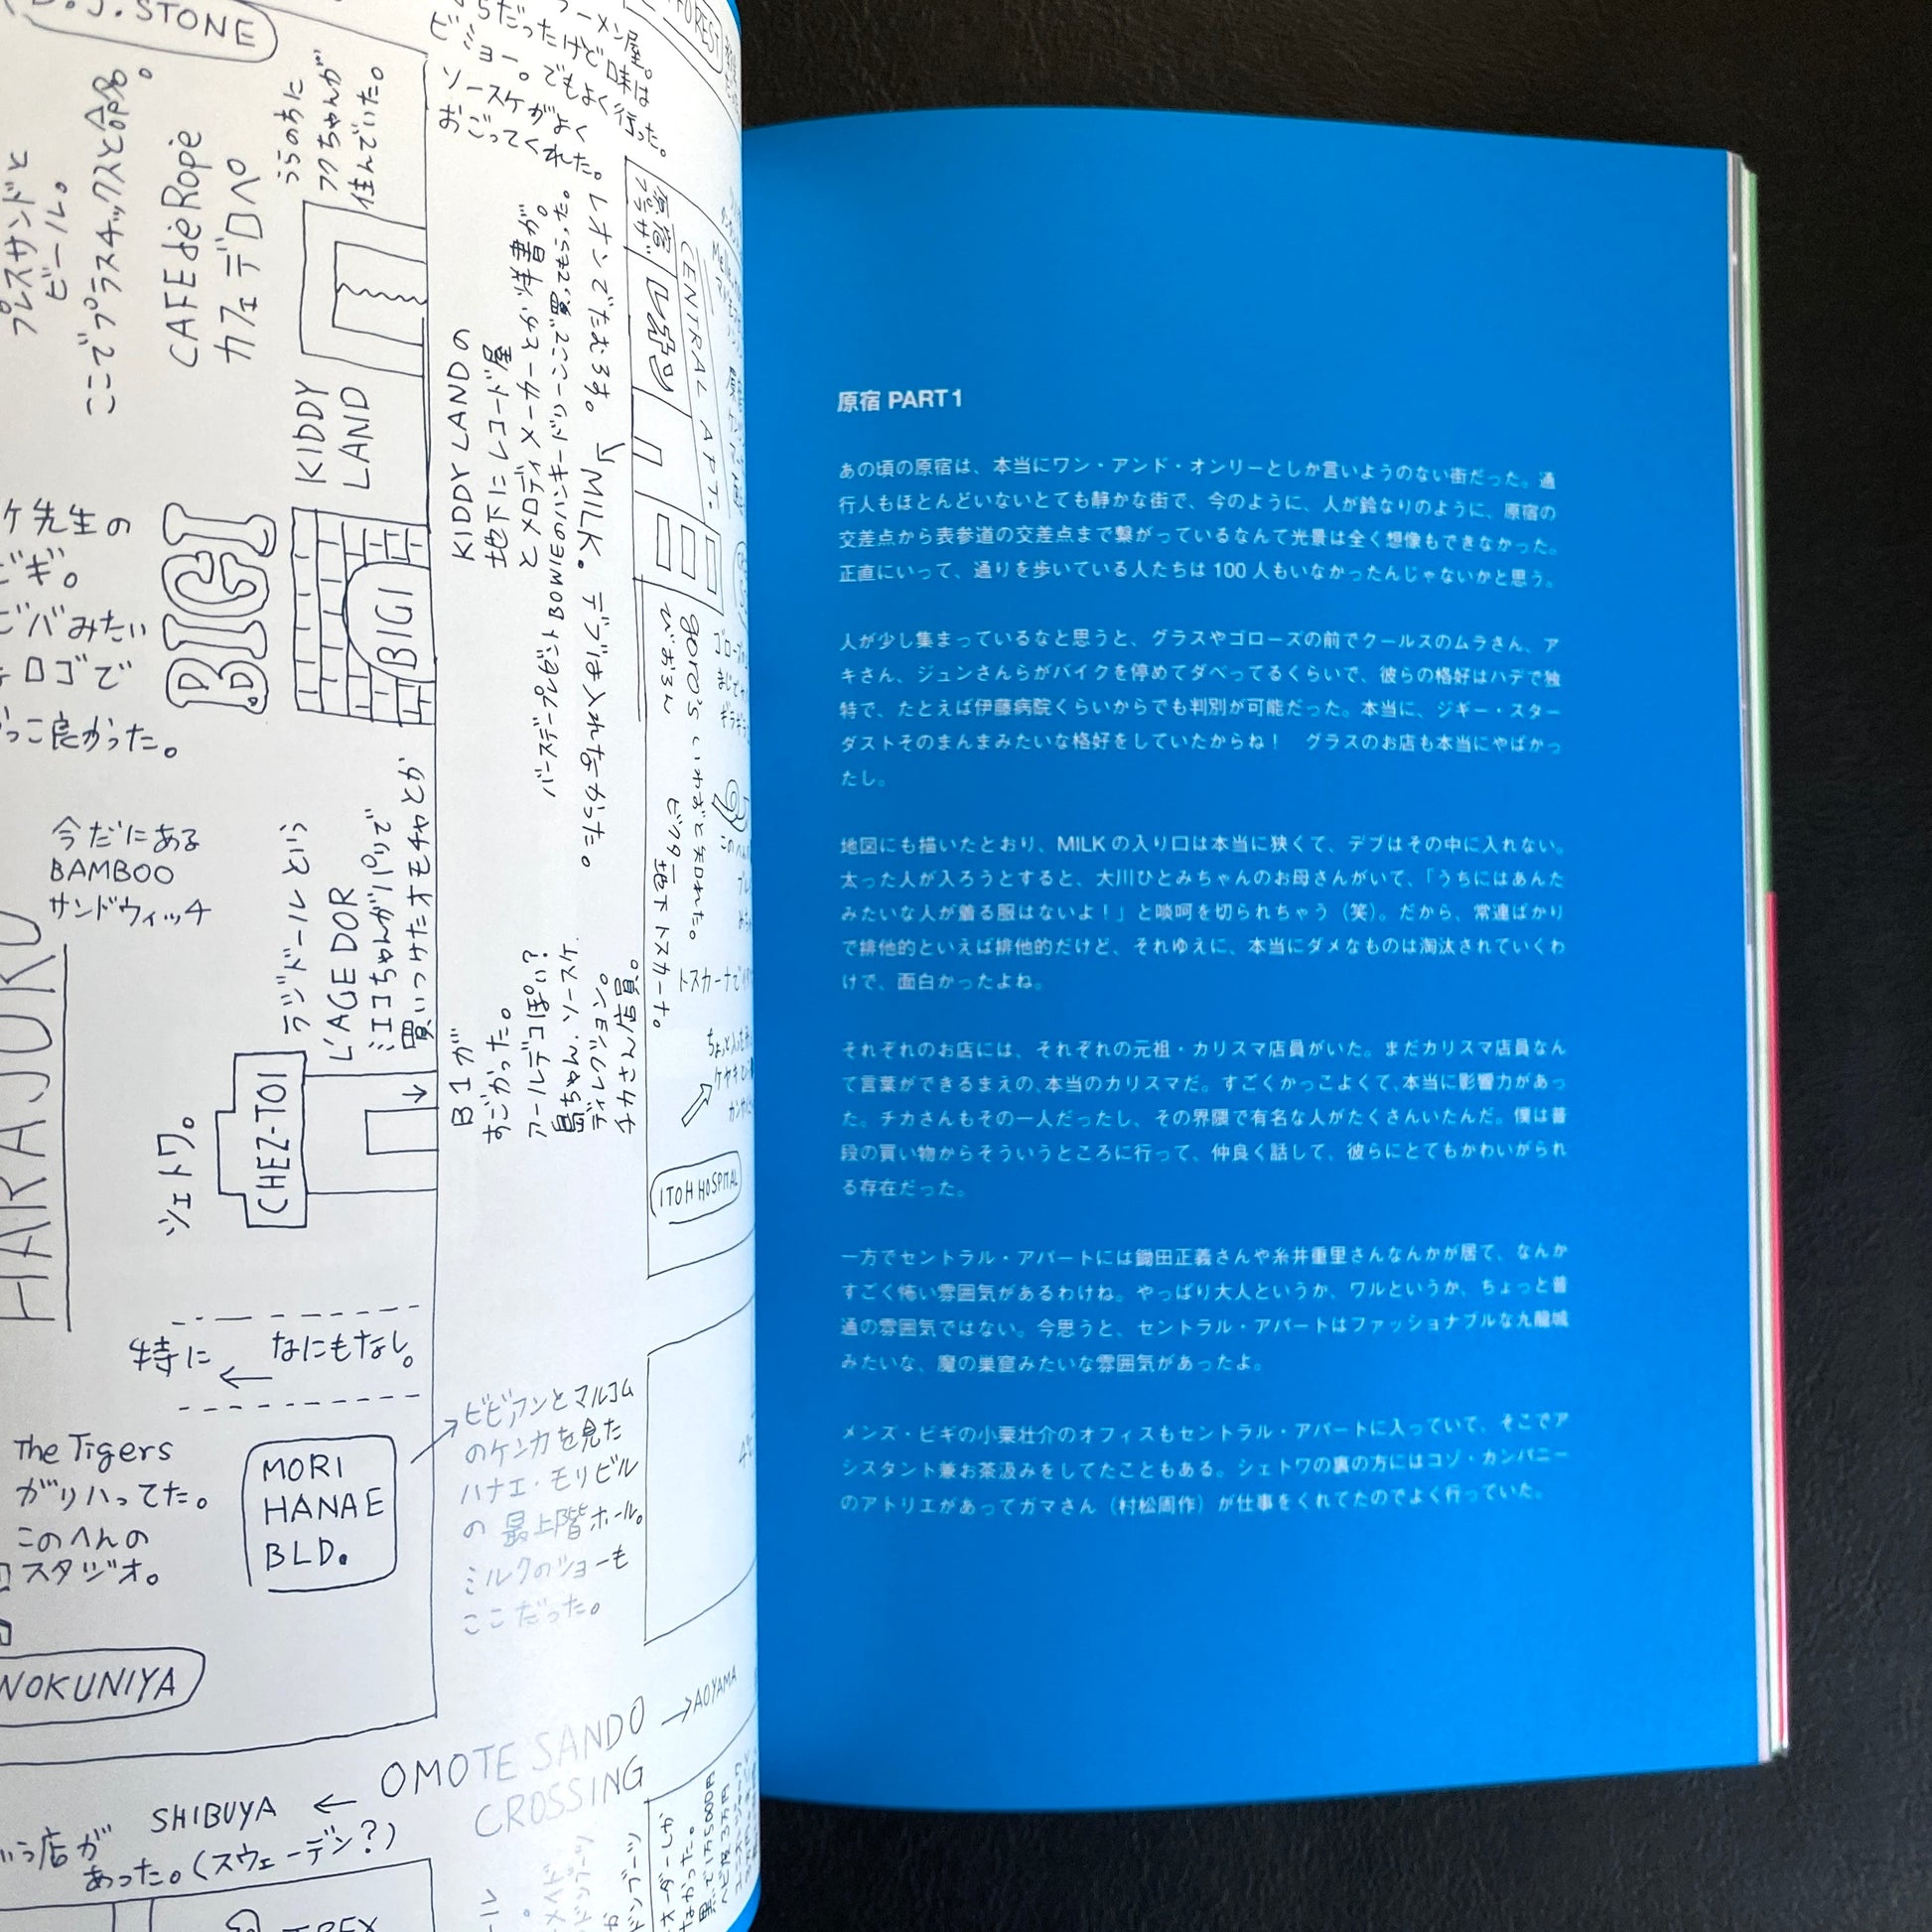 D.J.STONE
ビミョー。でもよく行った。
ソースケがよく
おごってくれた。
うらのちに
フクちゃんが
住んでいた。
プレスサンドと
ビール。
ここでプラスチックスと命名。
CAFE de Ropé
カフェ デロペ
KIDDY
LAND
KIDDY LANDの
地下にレコード屋
レオンでたむろする。
MILK。デブは入れなかった。
原宿
プラザ
レオン
CENTRAL APT.
ケ先生の
BIGI
BIGI
ロゴで
良かった。
goro's
びおろん
ビクター地下 トスカーナ。
今だにある
BAMBOO
サンドウィッチ
HARAJUKU
ラジドールという
L'AGE DOR
ミエコちゃんがパリで
買いつけたオモチャとか
B1が
すごかった。
チカさん店員。
シェトワ。
CHEZ-TOI
ITOH HOSPITAL
特に ← なにもなし。
The Tigers
がリハってた。
このへんの
スタジオ。
MORI
HANAE
BLD.
ビビアンとマルコム
のケンカを見た
ハナエ・モリビル
の最上階ホール。
ミルクのショーも
ここだった。
NOKUNIYA
OMOTE SANDO
CROSSING
→AOYAMA
SHIBUYA ←
店が
あった。(スウェーデン?)
T.REX
原宿 PART 1
あの頃の原宿は、本当にワン・アンド・オンリーとしか言いようのない街だった。通
行人もほとんどいないとても静かな街で、今のように、人が鈴なりのように、原宿の
交差点から表参道の交差点まで繋がっているなんて光景は全く想像もできなかった。
正直にいって、通りを歩いている人たちは 100 人もいなかったんじゃないかと思う。
人が少し集まっているなと思うと、グラスやゴローズの前でクールスのムラさん、ア
キさん、ジュンさんらがバイクを停めてダベってるくらいで、彼らの格好はハデで独
特で、たとえば伊藤病院くらいからでも判別が可能だった。本当に、ジギー・スター
ダストそのまんまみたいな格好をしていたからね！　グラスのお店も本当にやばかっ
たし。
地図にも描いたとおり、MILK の入り口は本当に狭くて、デブはその中に入れない。
太った人が入ろうとすると、大川ひとみちゃんのお母さんがいて、「うちにはあんた
みたいな人が着る服はないよ！」と啖呵を切られちゃう（笑）。だから、常連ばかり
で排他的といえば排他的だけど、それゆえに、本当にダメなものは淘汰されていくわ
けで、面白かったよね。
それぞれのお店には、それぞれの元祖・カリスマ店員がいた。まだカリスマ店員なん
て言葉ができるまえの、本当のカリスマだ。すごくかっこよくて、本当に影響力があっ
た。チカさんもその一人だったし、その界隈で有名な人がたくさんいたんだ。僕は普
段の買い物からそういうところに行って、仲良く話して、彼らにとてもかわいがられ
る存在だった。
一方でセントラル・アパートには鋤田正義さんや糸井重里さんなんかが居て、なんか
すごく怖い雰囲気があるわけね。やっぱり大人というか、ワルというか、ちょっと普
通の雰囲気ではない。今思うと、セントラル・アパートはファッショナブルな九龍城
みたいな、魔の巣窟みたいな雰囲気があったよ。
メンズ・ビギの小栗壮介のオフィスもセントラル・アパートに入っていて、そこでア
シスタント兼お茶汲みをしてたこともある。シェトワの裏の方にはコゾ・カンパニー
のアトリエがあってガマさん（村松周作）が仕事をくれてたのでよく行っていた。